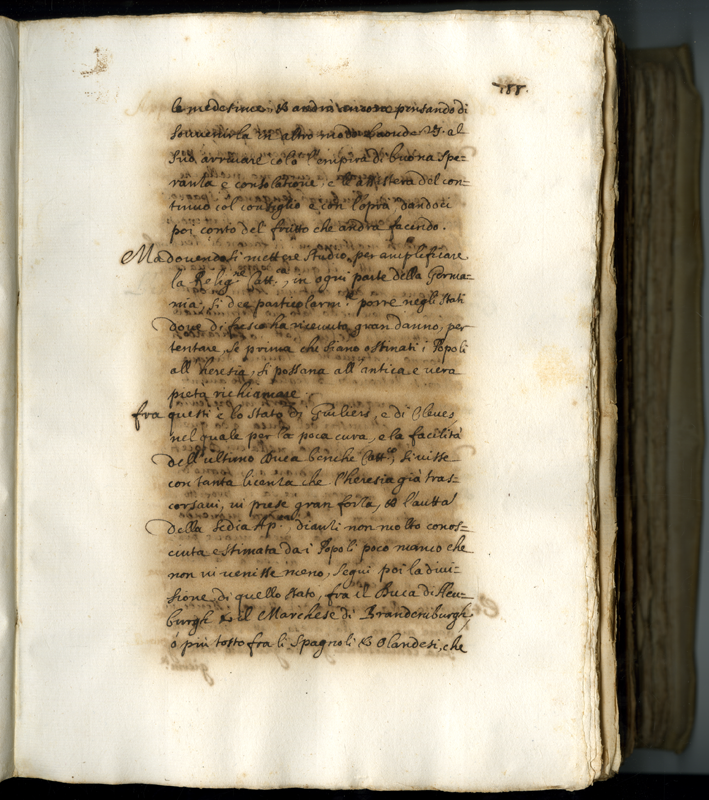 188.
le medesime, & andrà ancora pensando di
sovvenirla in altro modo, laonde V.S. al
suo arrivare colà l'empirà di buona spe=
ranza e consolatione, e l'assisterà del con=
tinuo col consiglio e con l'opra dandoci
poi conto del frutto che andrà facendo.
Ma dovendosi mettere studio per amplificare
la Relig.ne Catt.ca, in ogni parte della Germa=
nia, si dee particolarm.te porre negli Stati
dove di fresco ha ricevuta gran danno, per
tentare, se prima che siano ostinati i Popoli
all'heresia, si possana all'antica e vera
pietà richiamare.
fra questi è lo stato di Giuliers, e di Cleves,
nel quale per la poca cura, e la facilità
dell'ultimo Duca benche Catt.co, si visse
con tanta licenza che l'heresia già tras=
corsavi, vi prese gran forza, & l'autta
della Sedia Ap. divuli non molto conos=
ciuta e stimata da i Popoli poco manco che
non vi venisse meno, seguì poi la divi=
sione, di quello stato, fra il Duca di Neu=
burgh & il Marchese di Brandemburgh,
ò più tosto fra li Spagnoli & Olandesi, che